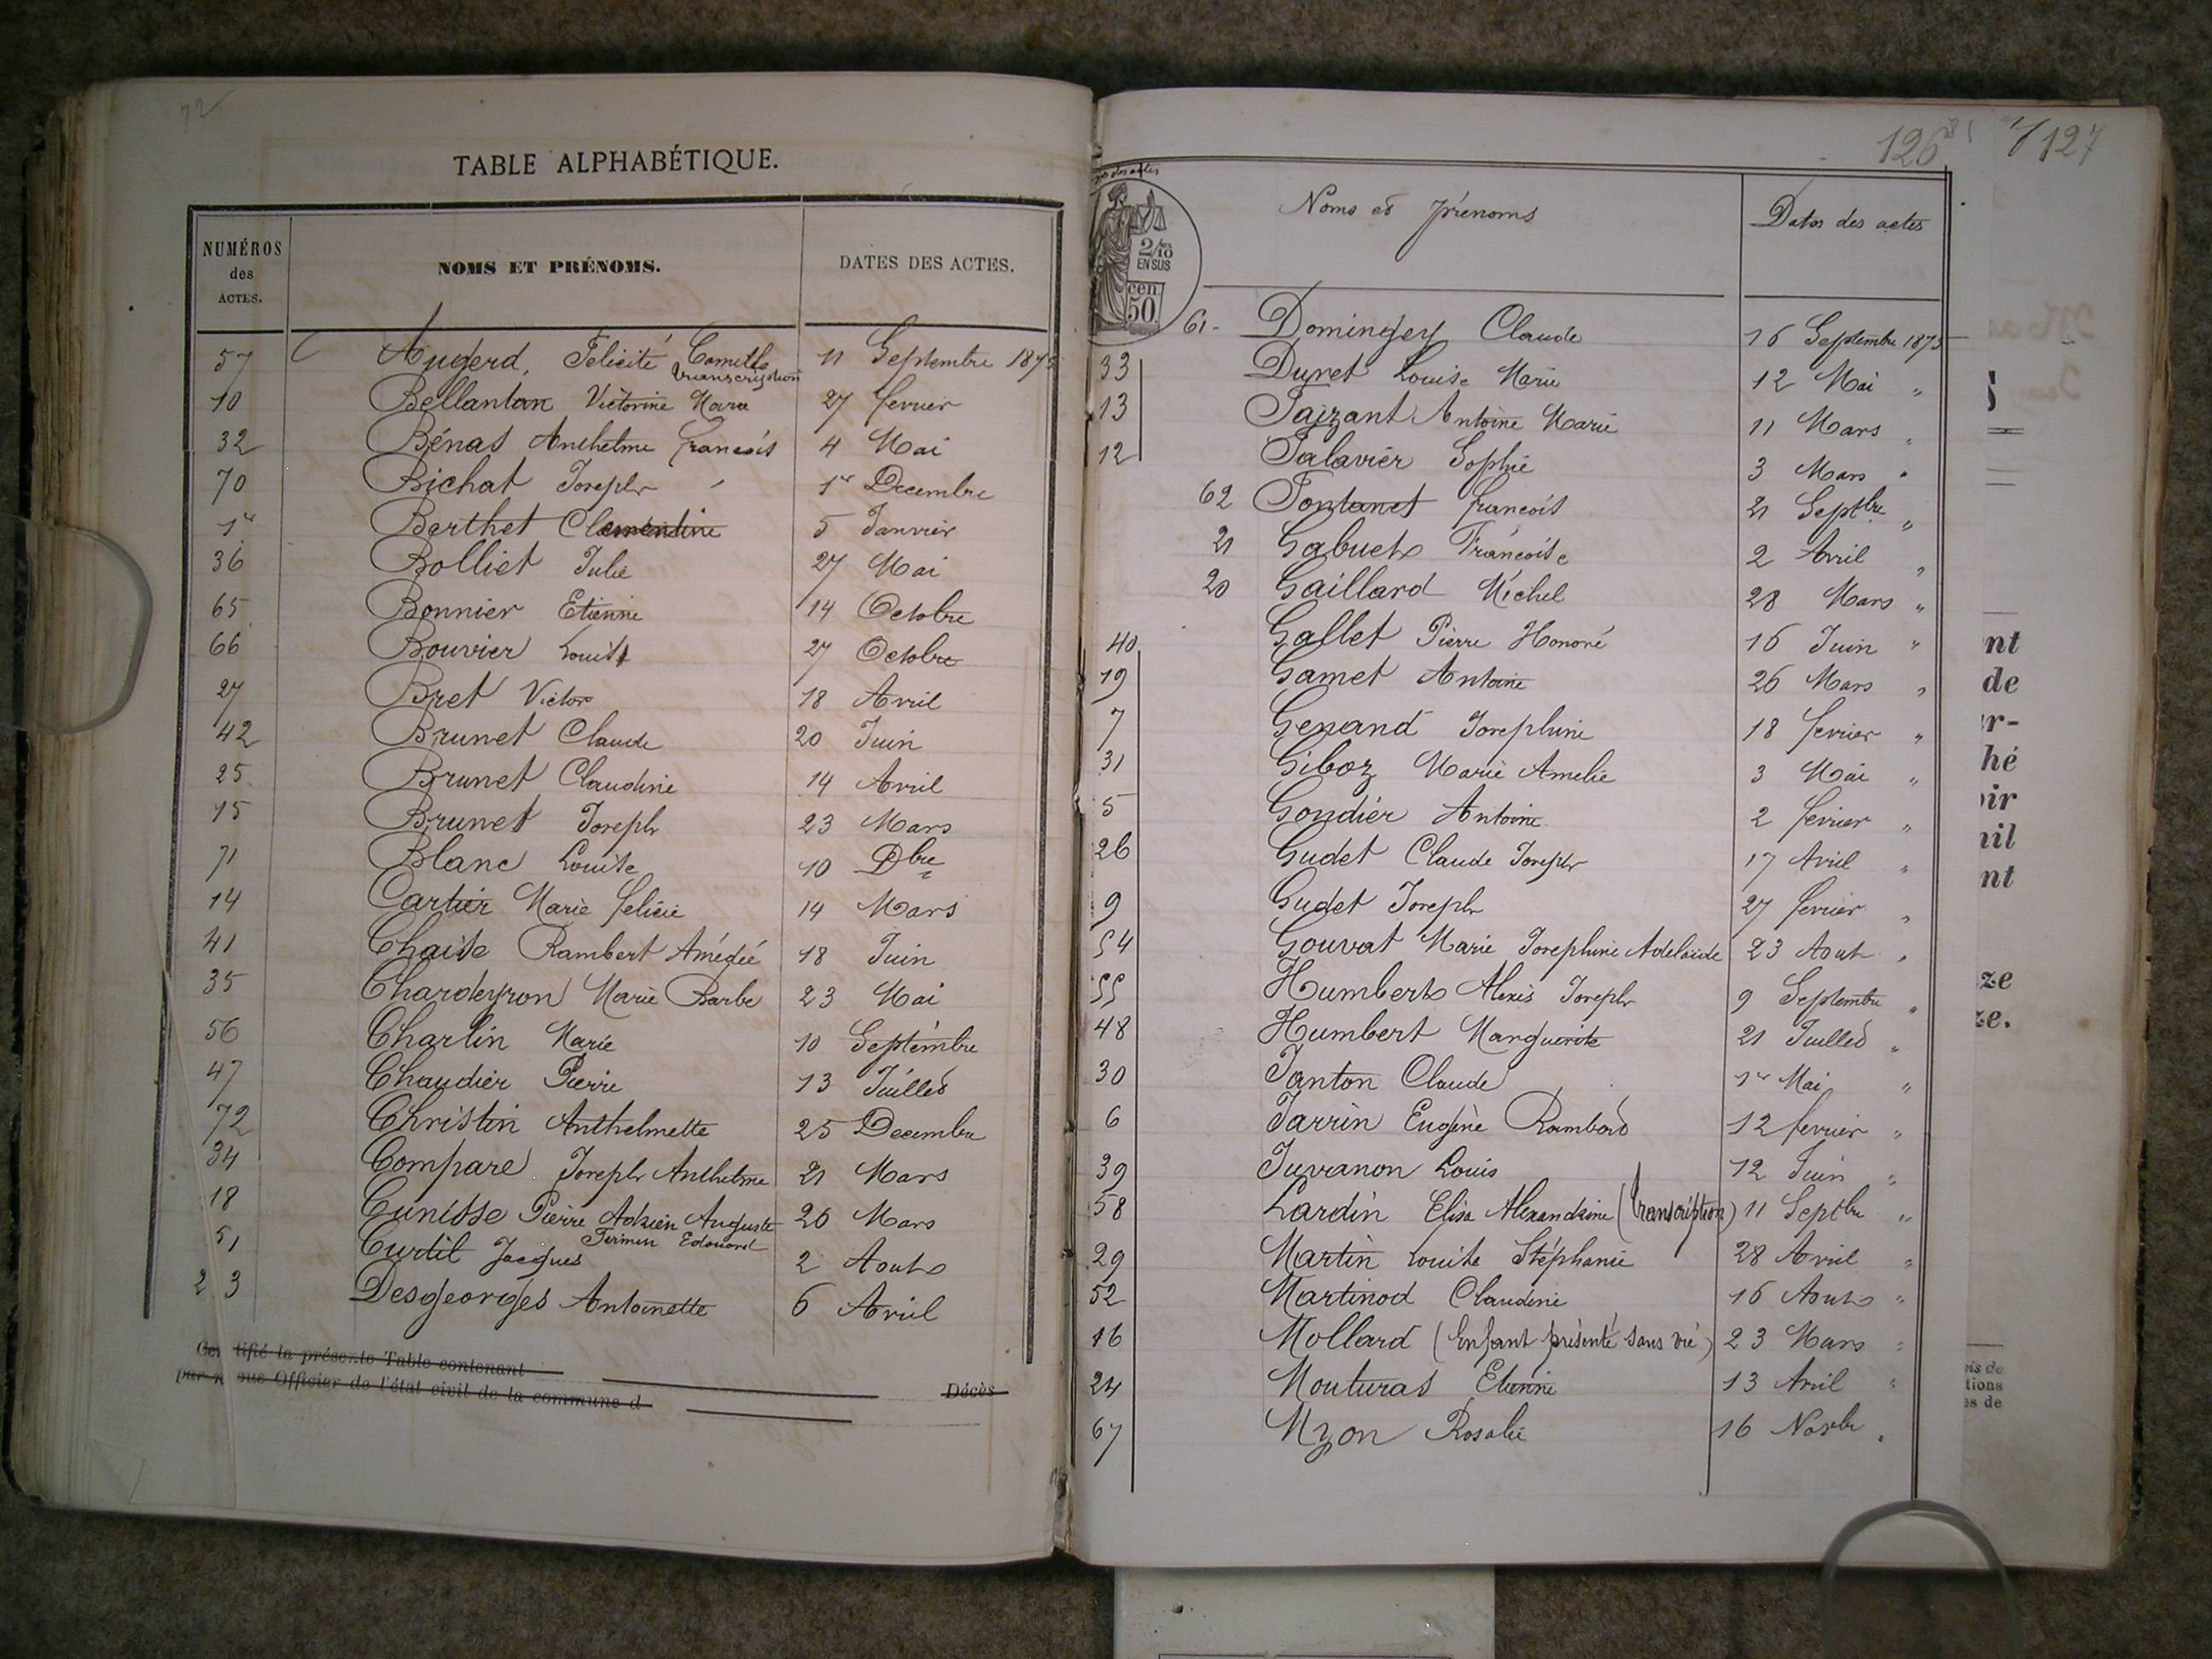 72
TABLE ALPHABÉTIQUE.
NUMÉROS des ACTES. NOMS ET PRÉNOMS. DATES DES ACTES.
57 Augerd, Felicité Camille transcription 11 Septembre 1875
10 Bellantan Victorine Marie 27 fevrier
32 Bénas Anthelme francois 4 Mai
70 Bichat Joseph 1er Decembre
1er Berthet Clementine 5 Janvier
36 Bolliet Julie 27 Mai
65 Bonnier Etienne 14 Octobre
66 Bouvier Louis 27 Octobre
27 Bret Victor 18 Avril
42 Brunet Claude 20 Juin
25 Brunet Claudine 14 Avril
15 Brunet Joseph 23 Mars
71 Blanc Louise 10 Dbre
14 Cartier Marie felicie 14 Mars
41 Chaise Rambert Amédée 18 Juin
35 Chardeyron Marie Barbe 23 Mai
56 Charlin Marie 10 Septembre
47 Chaudier Pierre 13 Juillet
72 Christin Anthelmette 25 Decembre
34 Compare Joseph Anthelme 21 Mars
18 Cunisse Pierre Adrien Auguste 26 Mars
Firmin Edouard
51 Curtil Jacques 2 Aout
23 Desgeorges Antoinette 6 Avril
Certifié la présente Table contenant Décès
par nous Officier de l'état civil de la commune d
126 127
Nos des actes Noms et prénoms Dates des actes
2/10 EN SUS
cen 50.
61 - Domingey Claude 16 Septembre 1875
33 Duret Louise Marie 12 Mai "
13 Faizant Antoine Marie 11 Mars "
12 Falavier Sophie 3 Mars "
62 Fontanet francois 21 Septbre "
21 Gabuet Francoise 2 Avril "
20 Gaillard Michel 28 Mars "
40 Gallet Pierre Honoré 16 Juin "
19 Gamet Antoine 26 Mars "
7 Genand Josephine 18 fevrier "
31 Giboz Marie Amelie 3 Mai "
5 Gondier Antoine 2 fevrier "
26 Gudet Claude Joseph 17 Avril "
9 Gudet Joseph 27 fevrier "
54 Gouvat Marie Josephine Adelaide 23 Aout "
55 Humbert Alexis Joseph 9 Septembre "
48 Humbert Marguerite 21 Juillet "
30 Janton Claude 1er Mai "
6 Jarrin Eugène Rambert 12 fevrier "
39 Juvanon Louis 12 Juin "
58 Lardin Elisa Alexandrine (transcription) 11 Septbre "
29 Martin Louise Stéphanie 28 Avril "
52 Martinod Claudine 16 Aout "
16 Mollard (Enfant présenté sans vie) 23 Mars "
24 Mouturas Etienne 13 Avril "
67 Myon Rosalie 16 Novbre "
nt
de
r-
hé
ir
nil
nt
ze
ze.
is de
tions
es de